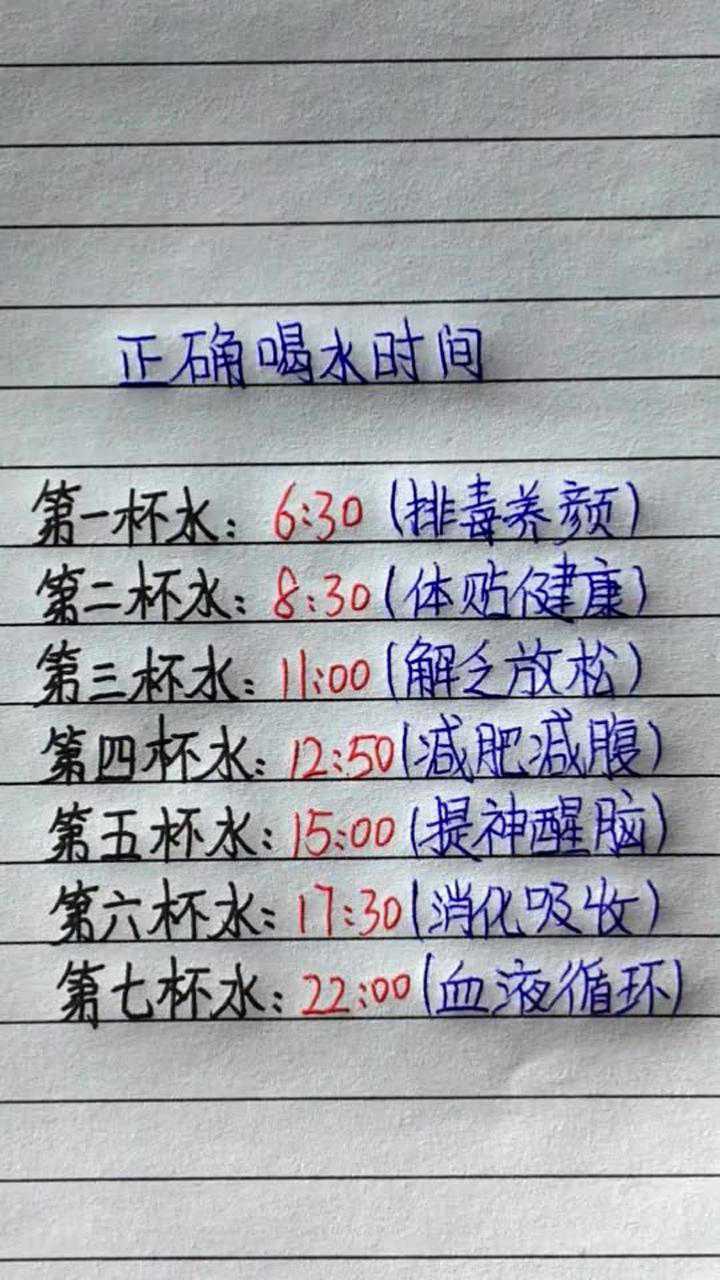 正确喝水时间
第一杯水：6:30（排毒养颜）
第二杯水：8:30（体贴健康）
第三杯水：11:00（解乏放松）
第四杯水：12:50（减肥减腹）
第五杯水：15:00（提神醒脑）
第六杯水：17:30（消化吸收）
第七杯水：22:00（血液循环）